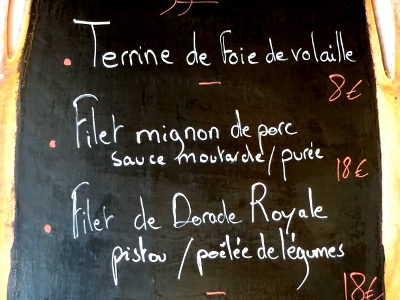 • Terrine de Foie de volaille
8€
• Filet mignon de porc
sauce moutarde / purée
18€
• Filet de Dorade Royale
pistou / poêlée de légumes
18€